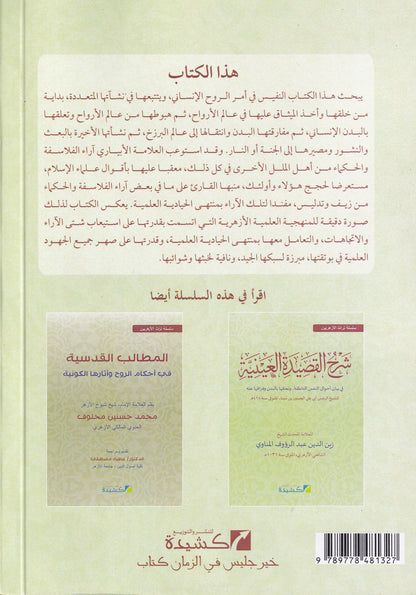 هذا الكتاب
يبحث هذا الكتاب النفيس في أمر الروح الإنساني، ويتتبعها في نشأتها المتعددة، بداية
من خلقها وأخذ الميثاق عليها في عالم الأرواح، ثم هبوطها من عالم الأرواح وتعلقها
بالبدن الإنساني، ثم مفارقتها البدن وانتقالها إلى عالم البرزخ، ثم نشأتها الأخيرة بالبعث
والنشور ومصيرها إلى الجنة أو النار. وقد استوعب العلامة الأبياري آراء الفلاسفة
والحكماء من أهل الملل الأخرى في كل ذلك، معقبا عليها بأقوال علماء الإسلام،
مستعرضا لحجج هؤلاء وأولئك، منبها القارئ على ما في بعض آراء الفلاسفة والحكماء
من زيف وتدليس، مفندا لتلك الآراء بمنتهى الحيادية العلمية. يعكس الكتاب لذلك
صورة دقيقة للمنهجية العلمية الأزهرية التي اتسمت بقدرتها على استيعاب شتى الآراء
والاتجاهات، والتعامل معها بمنتهى الحيادية العلمية، وقدرتها على صهر جميع الجهود
العلمية في بوتقتها، مبرزة لسبكها الجيد، ونافية لخبثها وشوائبها.
اقرأ في هذه السلسلة أيضا
سلسلة تراث الأزهريين
شرح القصيدة العينية
في بيان أحوال النفس الناطقة، وتعلقها بالبدن وفراقها عنه
العلامة المحدث الشيخ
زين الدين عبد الرؤوف المناوي
كشيدة
سلسلة تراث الأزهريين
المطالب القدسية
في أحكام الروح وآثارها الكونية
بقلم العلامة الإمام شيخ شيوخ الأزهر
محمد حسنين مخلوف
العدوي المالكي الأزهري
كشيدة
للنشر والتوزيع
كشيدة
خير جليس في الزمان كتاب
9 789778 481327